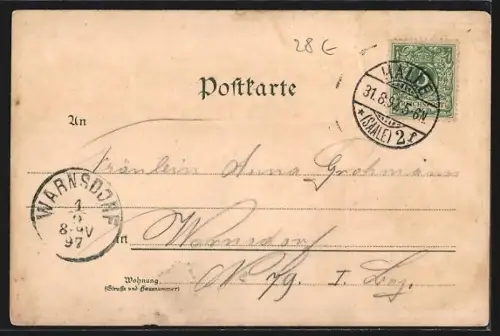 28 €
Postkarte
HALLE
31.8.97.5-6N.
*(SAALE)2f
5
An
Fräulein Anna Grohmann
WARNSDORF
1
9
8-9V
97
in Warnsdorf
No 79. I. Bez.
Wohnung
(Straße und Hausnummer)